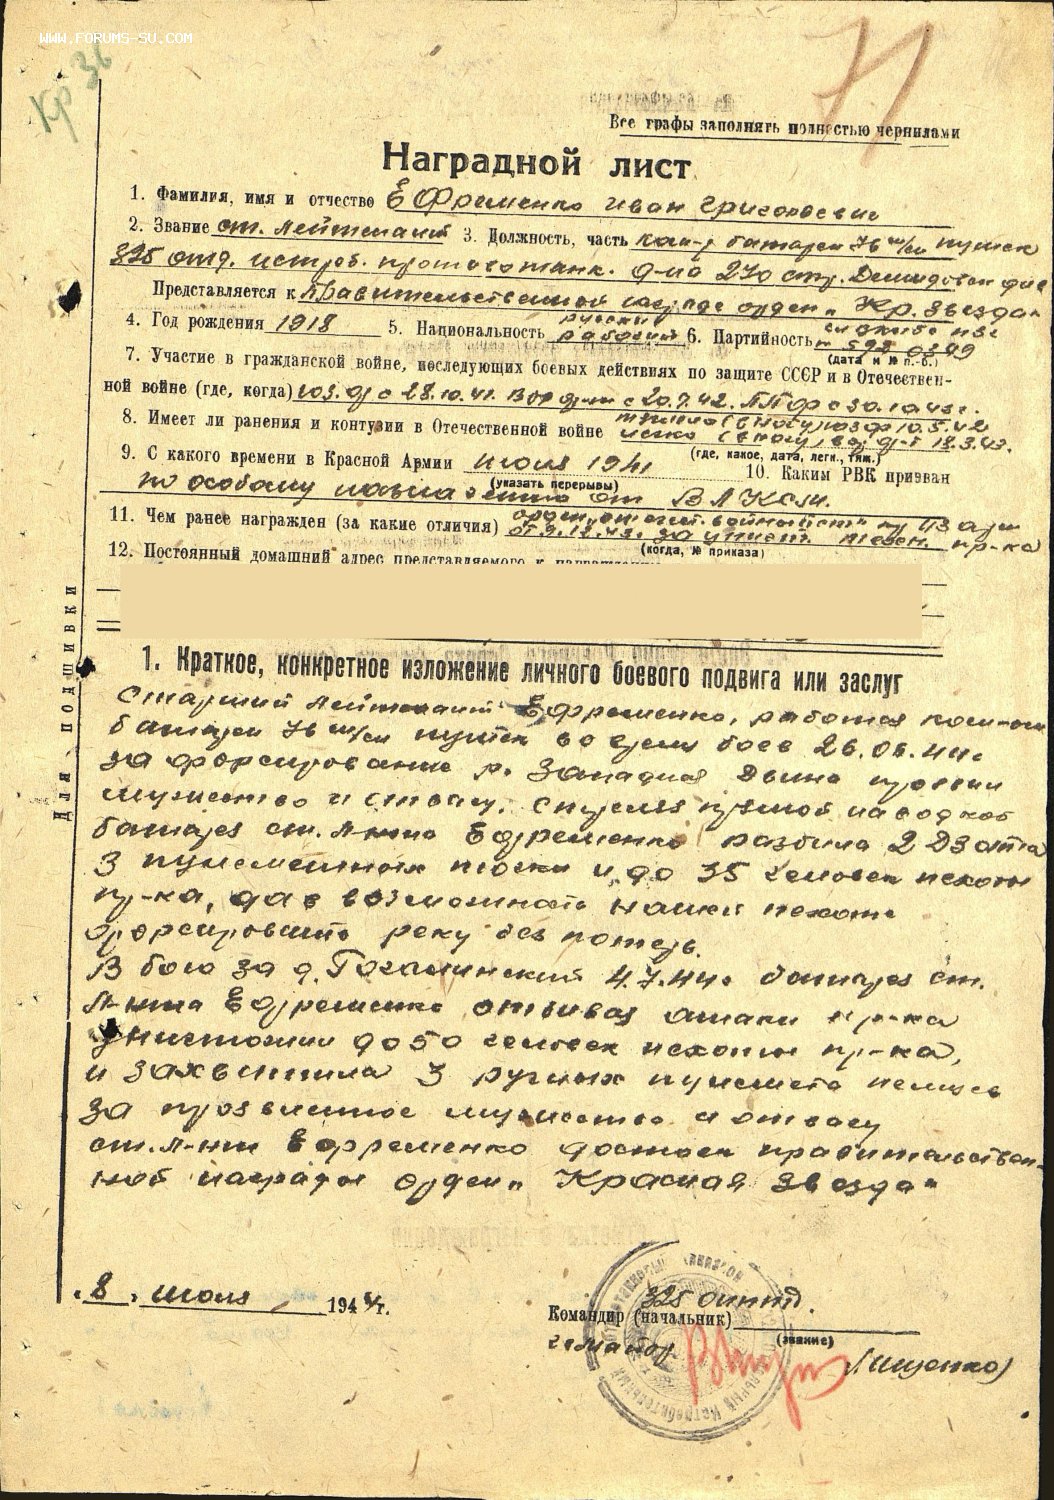 WWW.FORUMS-SU.COM
Кр Зв
71
Все графы заполнять полностью чернилами
Наградной лист
1. Фамилия, имя и отчество Ефременко Иван Григорьевич
2. Звание ст. лейтенант 3. Должность, часть ком-р батареи 76 м/м пушек
325 отд. истреб. противотанк. д-на 270 стр. Демидовск див
Представляется к правительственной награде орден „Кр. Звезда"
4. Год рождения 1918 5. Национальность русский рабочий 6. Партийность
(дата и № п.-б.)
7. Участие в гражданской войне, последующих боевых действиях по защите СССР и в Отечествен-
ной войне (где, когда) с 28.10.41. с 20.7.42. с 30.10.43г.
8. Имеет ли ранения и контузии в Отечественной войне 10.5.42
18.3.43.
(где, какое, дата, легк., тяж.)
9. С какого времени в Красной Армии июля 1941 10. Каким РВК призван
(указать перерывы)
по особому от
11. Чем ранее награжден (за какие отличия) орден отечест. войны
от 9.12.43. за пр-ка
(когда, № приказа)
12. Постоянный домашний адрес представляемого к
Для подшивки
1. Краткое, конкретное изложение личного боевого подвига или заслуг
Старший лейтенант Ефременко, работая
батареи 76 м/м пушек во время боев 26.06.44г.
за форсирование р. Западная Двина проявил
мужество и отвагу. Стреляя прямой наводкой
батарея ст. л-нта Ефременко разбила 2 Дзота
3 пулеметных точки и до 35 человек пехоты
пр-ка, дав возможность нашей пехоте
форсировать реку без потерь.
В бою за д. 4.7.44г. батарея ст.
л-нта Ефременко отбивая атаки пр-ка
уничтожили до 50 человек пехоты пр-ка,
и захватила 3 ручных пулемета немцев
за проявленное мужество и отвагу
ст. л-нт Ефременко достоин правительствен-
ной награды орден „Красная Звезда"
„8" июля 1944г.
325 оиптд.
Командир (начальник)
(звание)
майор
(Ищенко)